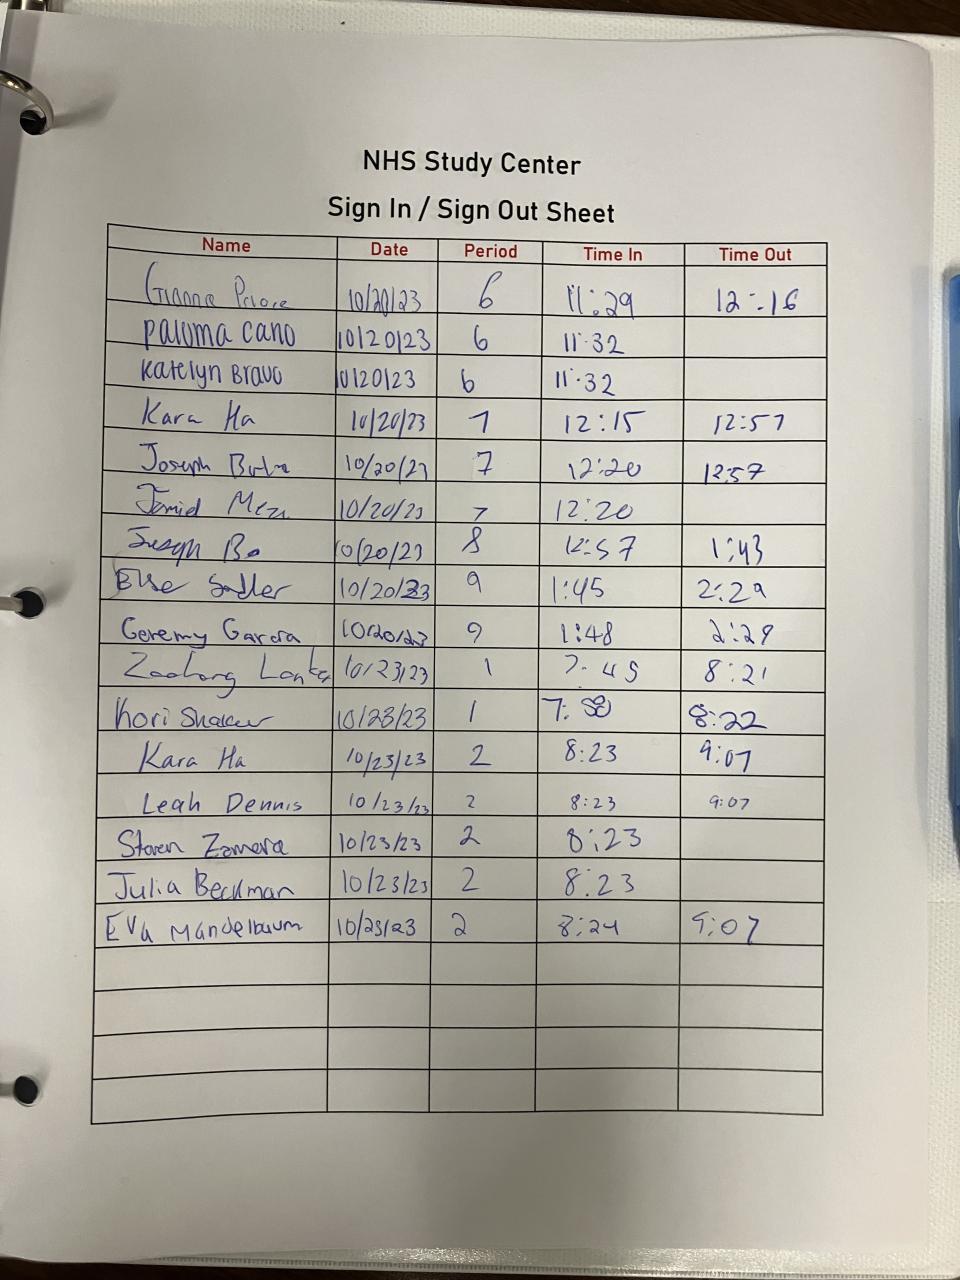 NHS Study Center
Sign In / Sign Out Sheet
Name Date Period Time In Time Out
Gianna 10/20/23 6 11:29 12:16
Paloma Cano 10/20/23 6 11:32
Katelyn Bravo 10/20/23 6 11:32
Kara Ha 10/20/23 7 12:15 12:57
Joseph 10/20/23 7 12:20 12:57
10/20/23 7 12:20
10/20/23 8 12:57 1:43
Sadler 10/20/23 9 1:45 2:29
Geremy Garcia 10/20/23 9 1:48 2:29
10/23/23 1 7:45 8:21
Kori 10/23/23 1 8:22
Kara Ha 10/23/23 2 8:23 9:07
Leah Dennis 10/23/23 2 8:23 9:07
Steven Zamora 10/23/23 2 8:23
Julia Beckman 10/23/23 2 8:23
Eva Mandelbaum 10/23/23 2 8:24 9:07